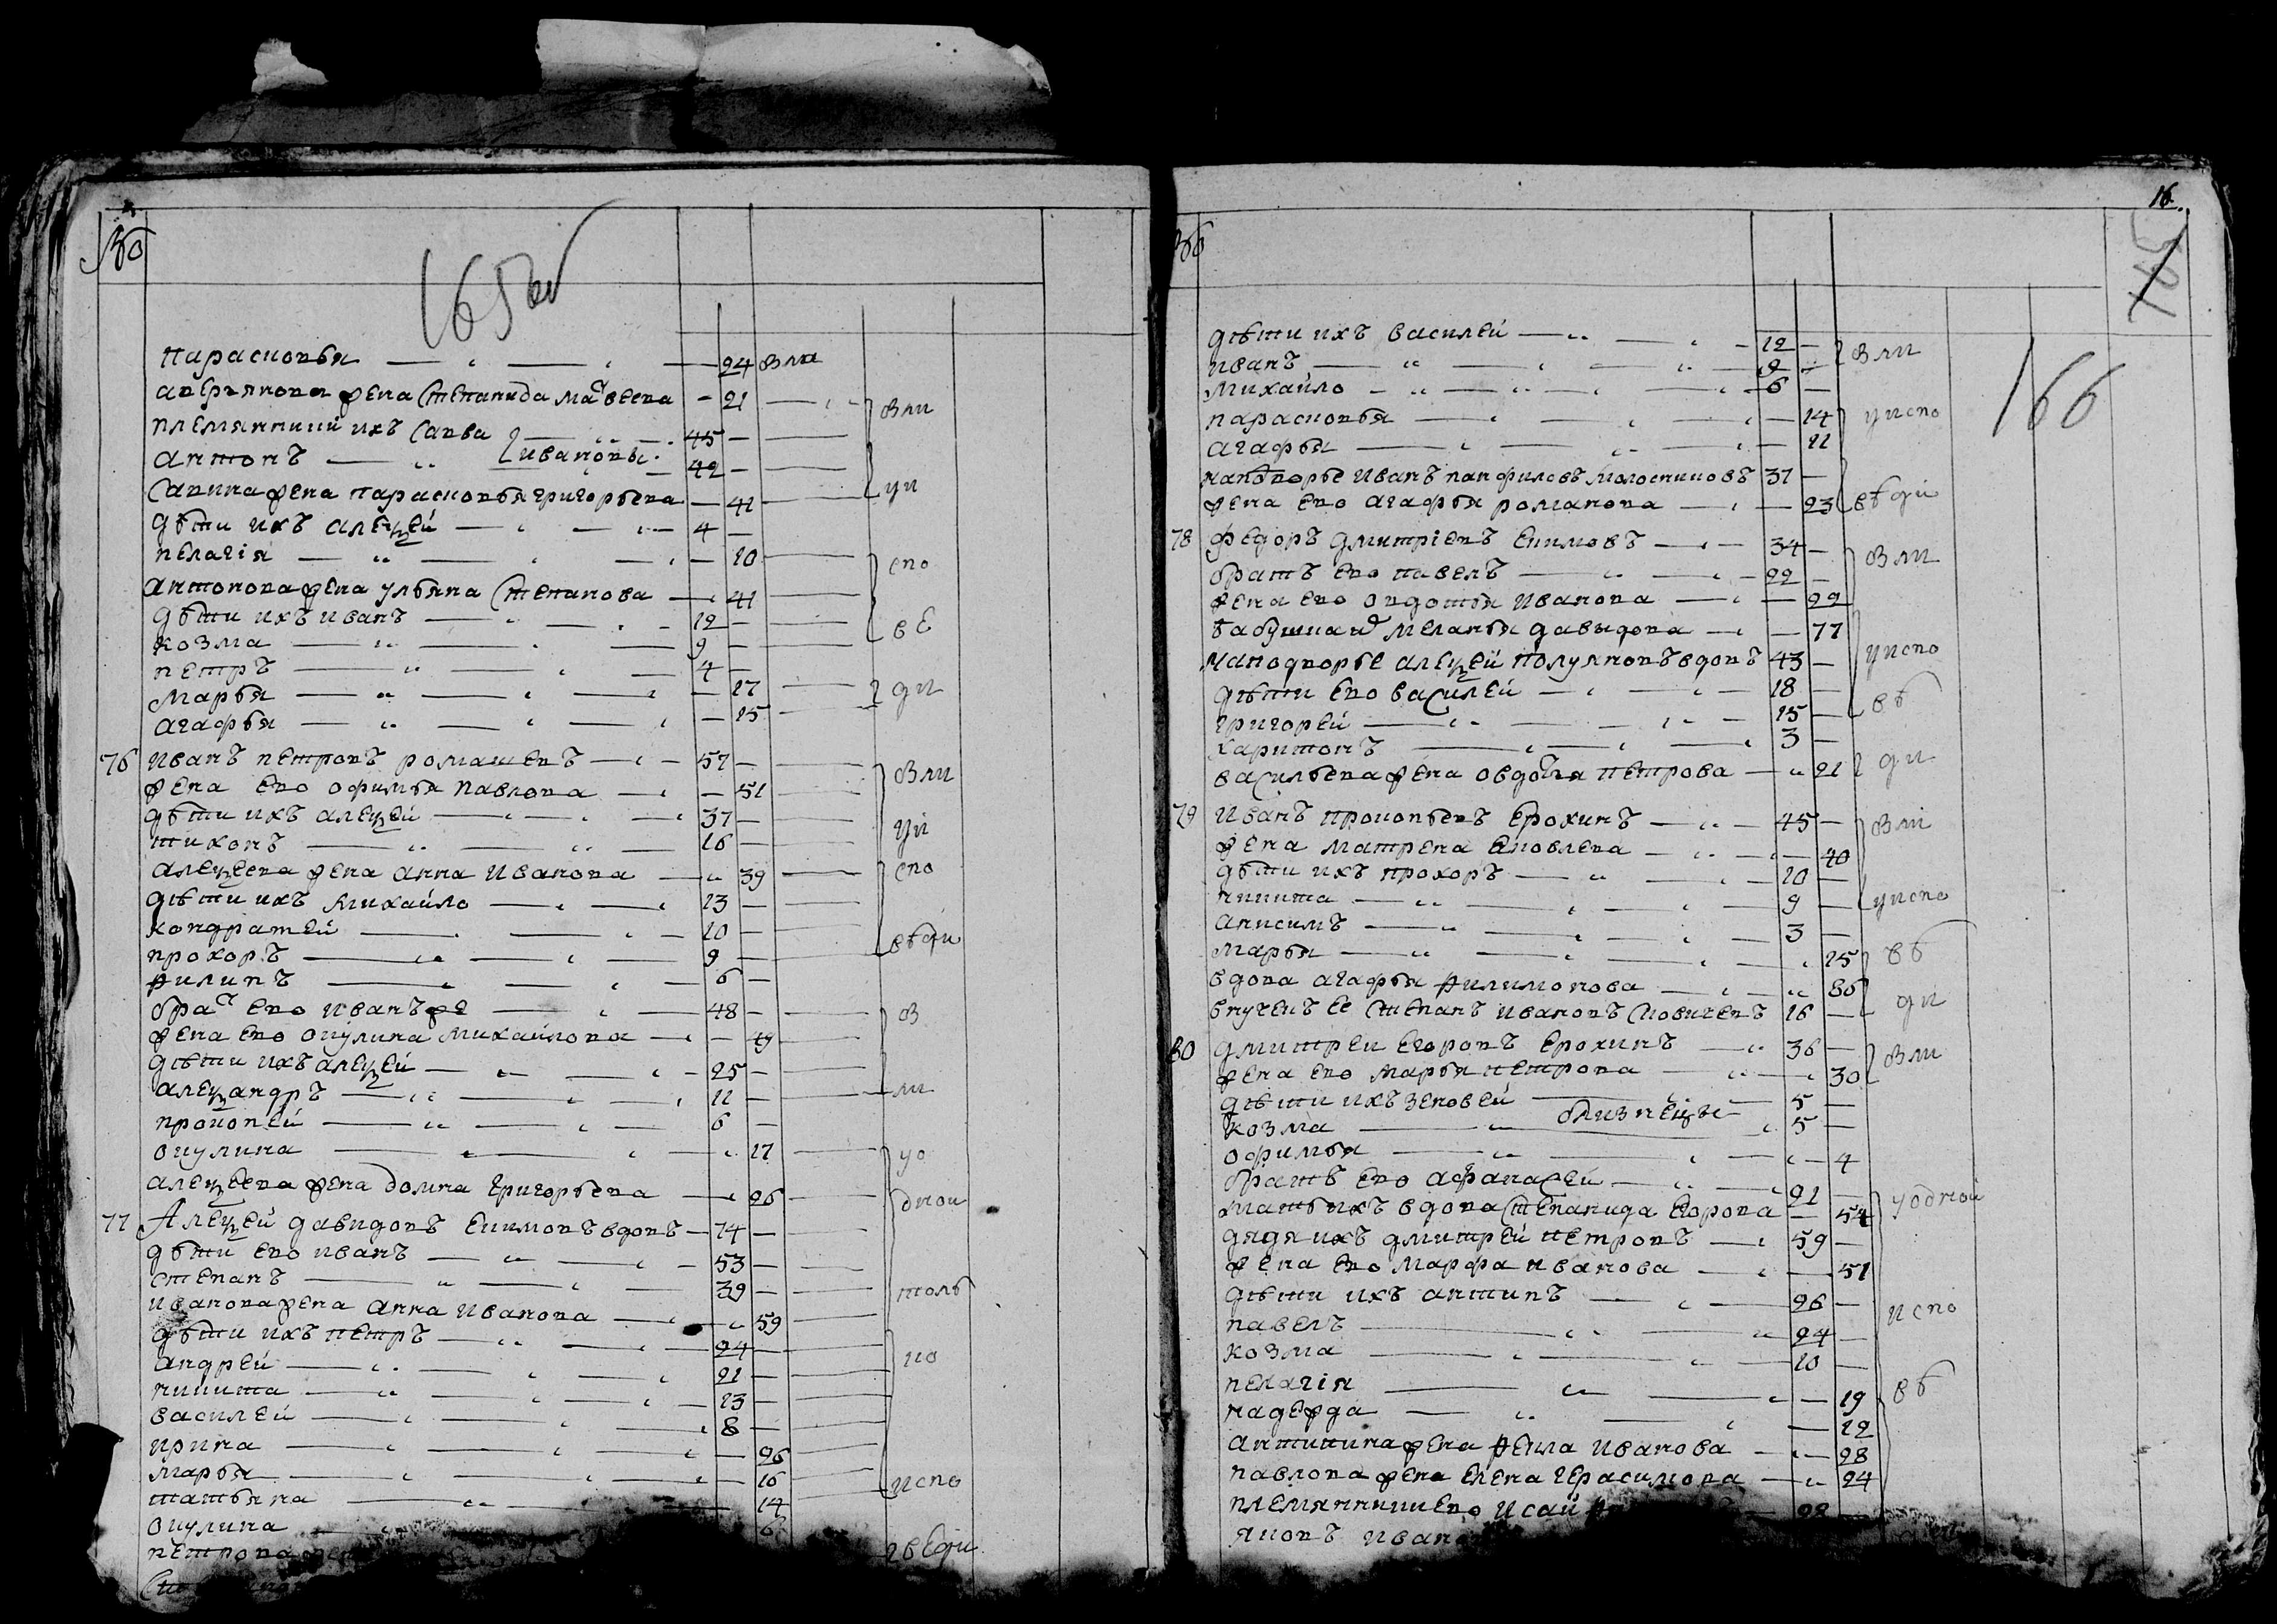 165 об
парасковья 24 вли
аверьянова жена степанида матвеева 21
племянники ихъ савва 45 вли
антонъ ивановы 42
савина жена парасковья григорьева 41 уи
дѣти ихъ алеѯей 4
пелагія 10
антонова жена ульяна степанова 41 спо
дѣти ихъ иванъ 12
козма 9 ве
петръ 4
марья 17 ди
агафья 15
76 иванъ петровъ ромашевъ 57
жена ево офимья павлова 51 вли
дѣти ихъ алеѯей 37
тихонъ 16 уи
алеѯеева жена анна иванова 39 спо
дѣти ихъ михайло 13
кондратей 10
прохоръ 9 вѣди
филипъ 6
братъ ево иванъ же 48 в
жена ево окулина михайлова 49
дѣти ихъ алеѯей 25
алеѯандръ 11 ли
прокопей 6
окулина 17 уо
алеѯеева жена домна григорьева 26
77 Алеѯей давидовъ екимовъ вдовъ 74 дной
дѣти ево иванъ 53
степанъ 39 толь
иванова жена анна иванова 59
дѣти ихъ петръ 24
андрей 21 ко
никита 13
василей 8
ирина 26
марья 16 испо
татьяна 14
окулина 6
петрова жена вѣди
16
165
166
дѣти ихъ василей 12
иванъ 9 вли
михайло 6
парасковья 14 уиспо
агафья 11
на подворье иванъ панфиловъ молоснимовъ 37
жена ево агафья романова 23 вѣди
78 федоръ дмитріевъ екимовъ 34 вли
братъ ево павелъ 22
жена ево овдотья иванова 22
бабушка и меланья давыдова 77
на подворье алеѯей полуяновъ вдовъ 43 уиспо
дѣти ево василей 18
григорей 15 вѣ
харитонъ 3
васильева жена овдотья петрова 21 ди
79 иванъ прокопьевъ ерохинъ 45 вли
жена матрена яковлева 40
дѣти ихъ прохоръ 10
никита 9 уиспо
анисимъ 3
марья 15 вѣ
вдова агафья филимонова 80
внучекъ ее степанъ ивановъ сковичевъ 16 ди
80 дмитреи егоровъ ерохинъ 36 вли
жена ево марья петрова 30
дѣти ихъ зеновей 5
козма близнецы 5
офимья 4
братъ ево афанасей 21
мать ихъ вдова степанида егорова 54 уодной
дядя ихъ дмитрей петровъ 59
жена ево марфа иванова 51
дѣти ихъ антипъ 26 испо
павелъ 24
козма 10
пелагія 19 вѣ
надежда 12
антипина жена фекла иванова 28
павлова жена елена герасимова 24
племянники ево исай 22
яковъ иван